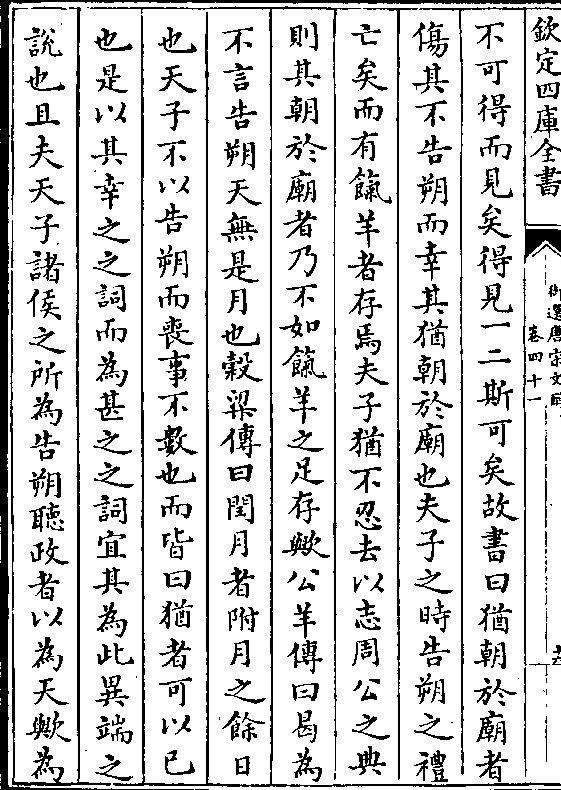 欽定四庫全書
御選唐宋文醇
卷四十一
不可得而見矣得見一二斯可矣故書曰猶朝於廟者
傷其不告朔而幸其猶朝於廟也夫子之時告朔之禮
亡矣而有餼羊者存焉夫子猶不忍去以志周公之典
則其朝於廟者乃不如餼羊之足存歟公羊傳曰曷為
不言告朔天無是月也穀梁傳曰閏月者附月之餘日
也天子不以告朔而喪事不數也而皆曰猶者可以已
也是以其幸之之詞而為甚之之詞宜其為此異端之
說也且夫天子諸侯之所為告朔聽政者以為天歟為